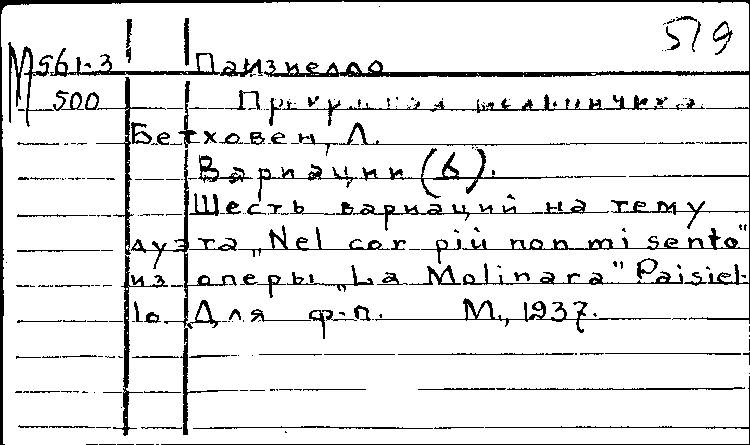 519
М 561-3 Паизиелло
500 Прекрасная мельничиха.
Бетховен, Л.
Вариации (6).
Шесть вариаций на тему
дуэта „Nel cor più non mi sento"
из оперы „La Molinara" Paisiel-
lo. Для ф-п. М., 1937.